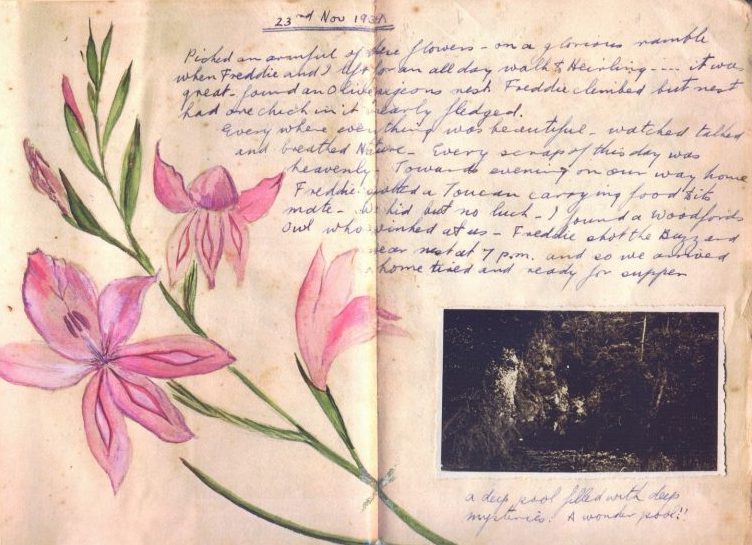 23rd Nov 193
Picked an armful of these flowers - on a glorious ramble
when Freddie and I left for an all day walk to .... it was
great - found an Olive Pigeons nest Freddie climbed but nest
had one chick in it nearly fledged.
Every where everything was beautiful - watched talked
and breathed Nature - Every scrap of this day was
heavenly. Towards evening on our way home
Freddie spotted a Toucan carrying food to its
mate - We hid but no luck - I found a Woodfords
Owl who winked at us - Freddie shot the Buzzard
near nest at 7 p.m. and so we arrived
home tired and ready for supper
a deep pool filled with deep
mysteries! A wonder pool!!